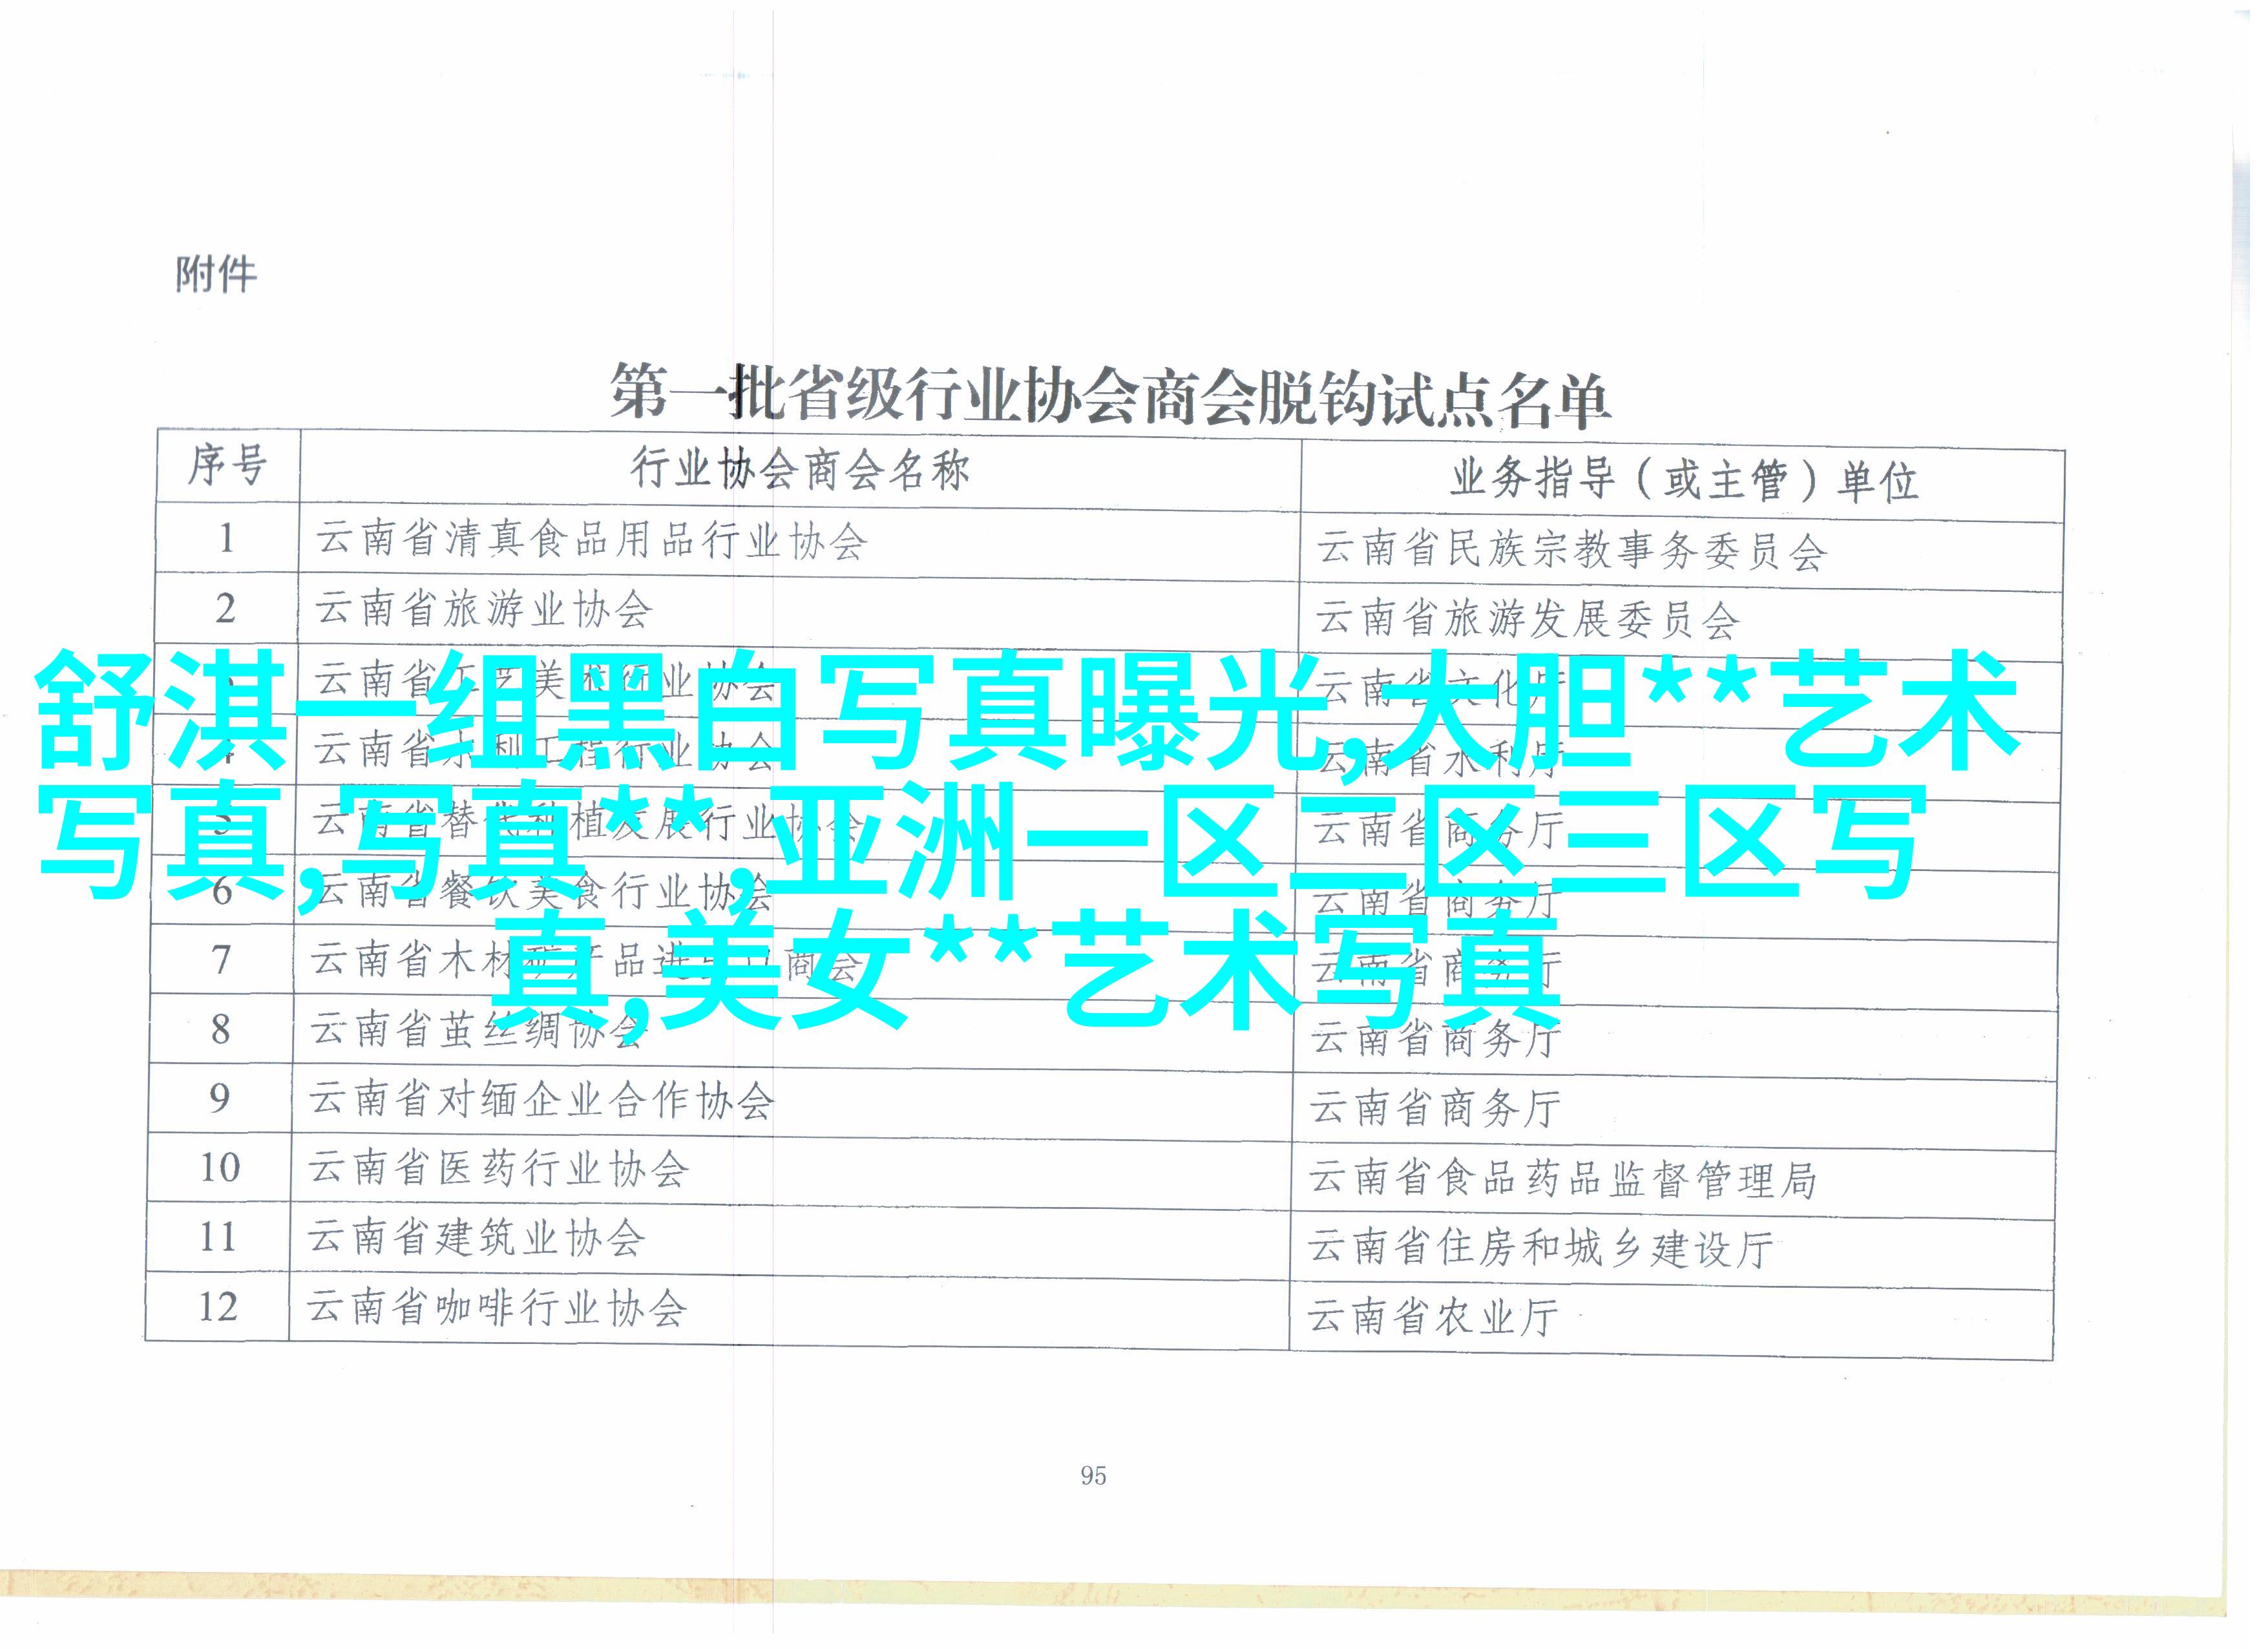 附件
第一批省级行业协会商会脱钩试点名单
序号 行业协会商会名称 业务指导（或主管）单位
1 云南省清真食品用品行业协会 云南省民族宗教事务委员会
2 云南省旅游业协会 云南省旅游发展委员会
云南省工艺美术行业协会 云南省文化厅
舒淇一组黑白写真曝光,大胆**艺术
4 云南省水利工程行业协会 云南省水利厅
5 云南省替代种植发展行业协会 云南省商务厅
写真,写真**,亚洲一区二区三区写
6 云南省餐饮美食行业协会 云南省商务厅
7 云南省木材矿产品进出口商会 云南省商务厅
真,美女**艺术写真
8 云南省茧丝绸协会 云南省商务厅
9 云南省对缅企业合作协会 云南省商务厅
10 云南省医药行业协会 云南省食品药品监督管理局
11 云南省建筑业协会 云南省住房和城乡建设厅
12 云南省咖啡行业协会 云南省农业厅
95